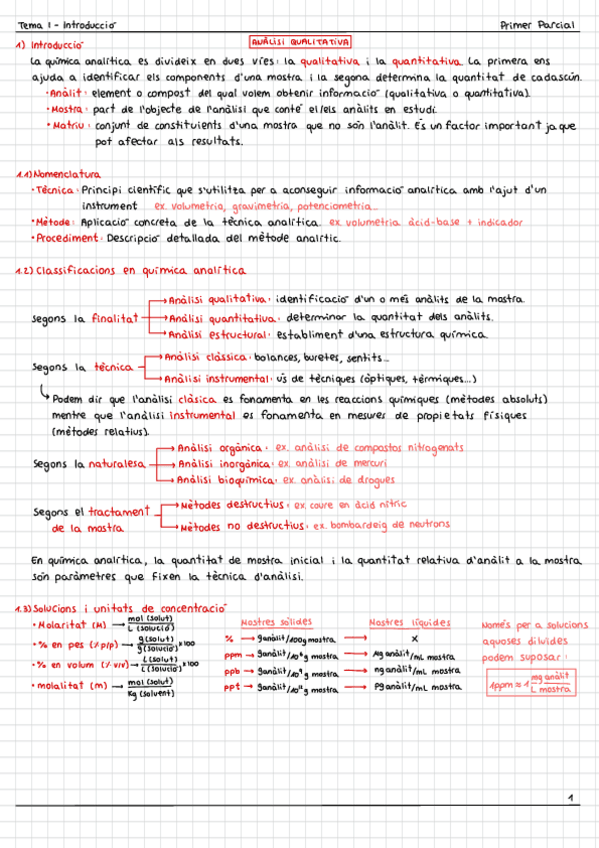 Tema 1 - Introducció
Primer Parcial
1) Introducció
ANÀLISI QUALITATIVA
La química analítica es divideix en dues vies: la qualitativa i la quantitativa. La primera ens
ajuda a identificar els components d'una mostra i la segona determina la quantitat de cadascún.
• Anàlit: element o compost del qual volem obtenir informació (qualitativa o quantitativa).
• Mostra: part de l'objecte de l'anàlisi que conté el/els anàlits en estudi.
• Matriu: conjunt de constituients d'una mostra que no són l'anàlit. És un factor important ja que
pot afectar als resultats.
1.1) Nomenclatura
• Tècnica: Principi científic que s'utilitza per a aconseguir informació analítica amb l'ajut d'un
instrument ex. volumetria, gravimetria, potenciometria...
• Mètode: Aplicació concreta de la tècnica analítica. ex. volumetria àcid-base + indicador
• Procediment: Descripció detallada del mètode analític.
1.2) Classificacions en química analítica
Anàlisi qualitativa: identificació d'un o més anàlits de la mostra.
segons la finalitat → Anàlisi quantitativa: determinar la quantitat dels anàlits.
Anàlisi estructural: establiment d'una estructura química.
segons la tècnica → Anàlisi clàssica: balances, buretes, sentits...
Anàlisi instrumental: ús de tècniques (òptiques, tèrmiques...)
Podem dir que l'anàlisi clàsica es fonamenta en les reaccions químiques (mètodes absoluts)
mentre que l'anàlisi instrumental es fonamenta en mesures de propietats físiques
(mètodes relatius).
Anàlisi orgànica: ex. anàlisi de compostos nitrogenats
Segons la naturalesa → Anàlisi inorgànica: ex. anàlisi de mercuri
Anàlisi bioquímica: ex. anàlisi de drogues
Segons el tractament → Mètodes destructius: ex. coure en àcid nítric
de la mostra → Mètodes no destructius: ex. bombardeig de neutrons
En química analítica, la quantitat de mostra inicial i la quantitat relativa d'anàlit a la mostra
són paràmetres que fixen la tècnica d'anàlisi.
1.3) Solucions i unitats de concentració
• Molaritat (M) → mol (solut) / L (solució)
• % en pes (% p/p) → g (solut) / g (solució) x100
• % en volum (% v/v) → L (solut) / L (solució) x100
• molalitat (m) → mol (solut) / Kg (solvent)
Mostres sòlides Mostres líquides
% → g anàlit/100g mostra → X
ppm → g anàlit/10⁶g mostra → µg anàlit/mL mostra
ppb → g anàlit/10⁹g mostra → ng anàlit/mL mostra
ppt → g anàlit/10¹²g mostra → pg anàlit/mL mostra
Només per a solucions
aquoses diluïdes
podem suposar:
1ppm ≈ 1 mg anàlit / L mostra
1